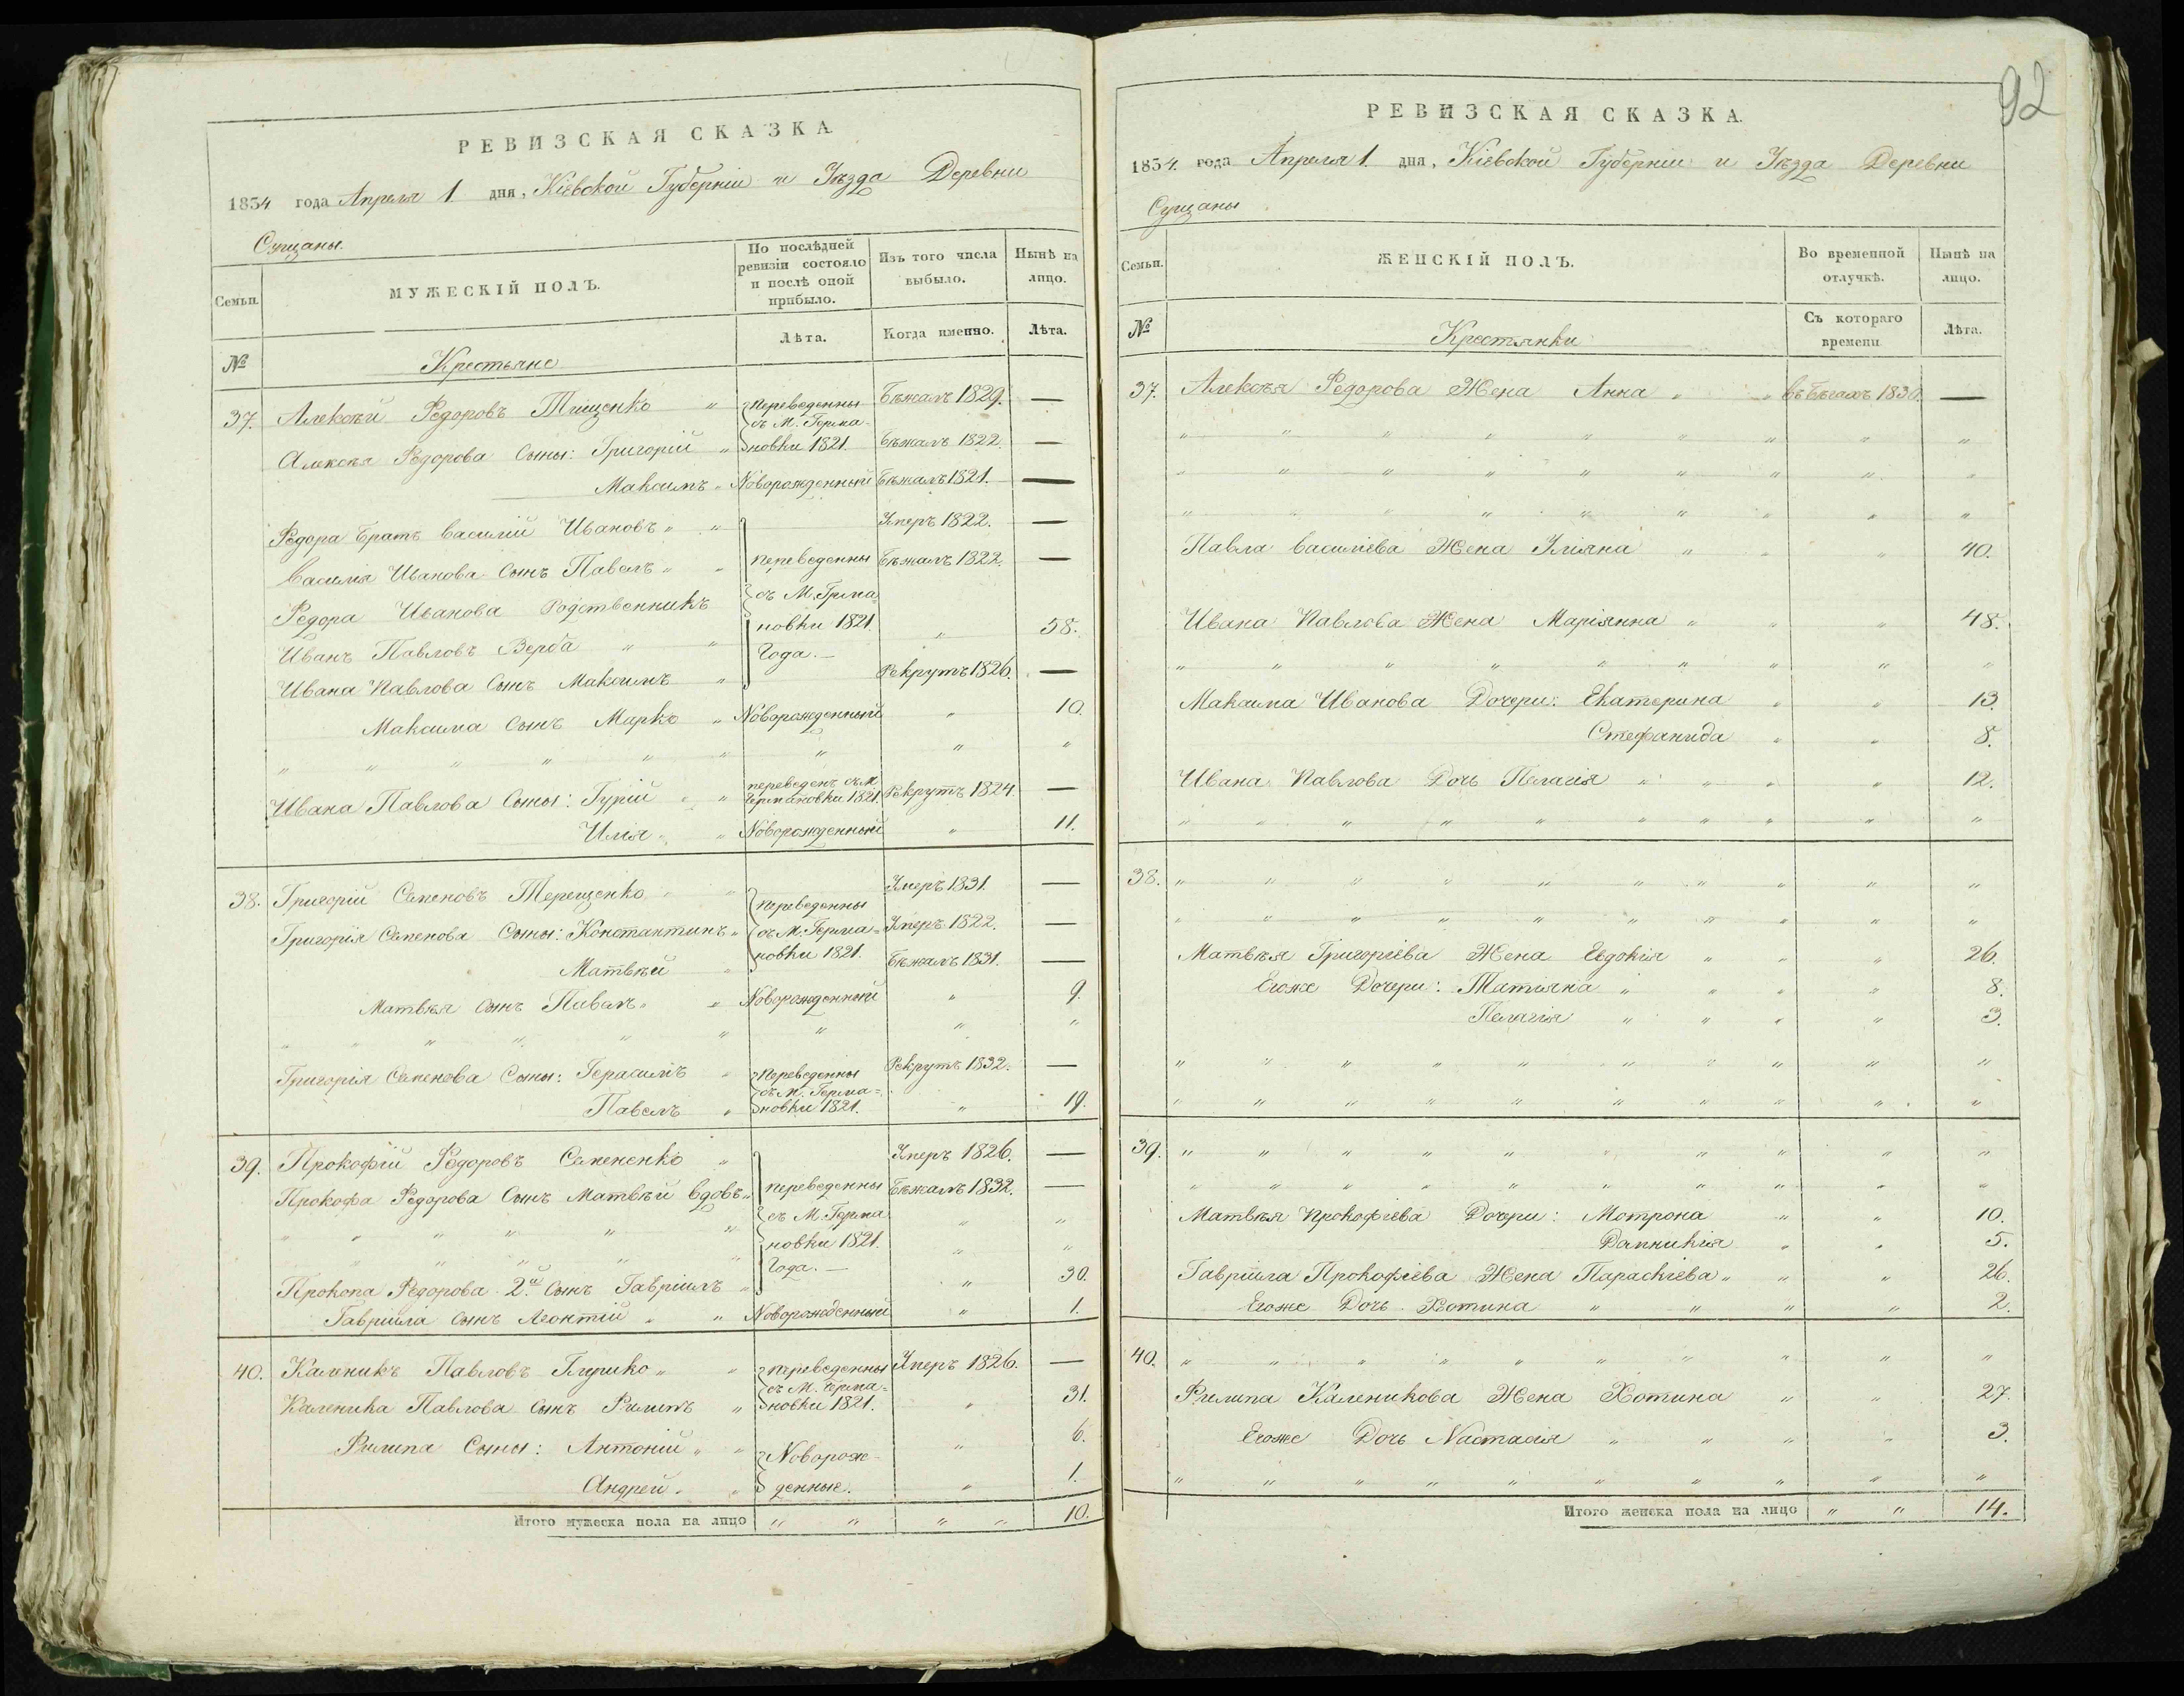 РЕВИЗСКАЯ СКАЗКА.
1834 года Апреля 1 дня, Кіевской Губерніи и Уѣзда Деревни
Сущаны.
Семьи. МУЖЕСКІЙ ПОЛЪ. По послѣдней ревизіи состояло и послѣ оной прибыло. Изъ того числа выбыло. Нынѣ на лицо.
№ Крестьяне Лѣта. Когда именно. Лѣта.
37. Алексѣй Ѳедоровъ Тищенко " переведенны Бѣжалъ 1829. —
съ М. Герма-
Алексѣя Ѳедорова Сыны: Григорій " новки 1821. Бѣжалъ 1822. —
Максимъ " Новорожденный Бѣжалъ 1821. —
Ѳедора Братъ Василій Ивановъ " " Умеръ 1822. —
Василія Иванова Сынъ Павелъ " " переведенны Бѣжалъ 1822. —
Ѳедора Иванова Родственникъ съ М. Грма=
Иванъ Павловъ Верба " " новки 1821. " 58.
Года. —
Ивана Павлова Сынъ Максимъ " Рекрутъ 1826. —
Максима Сынъ Марко " Новорожденный " 10.
" " " " " " " " "
Ивана Павлова Сыны: Гурій " " переведенъ съ М Германовки 1821. Рекрутъ 1824. —
Илія " " Новорожденный " 11.
38. Григорій Семеновъ Терещенко " " переведенны Умеръ 1831. —
Григорія Семенова Сыны: Константинъ " съ М. Герма= Умеръ 1822. —
Матвѣй " новки 1821. Бѣжалъ 1831. —
Матвѣя Сынъ Павелъ " " Новорожденный " 9.
" " " " " " " " "
Григорія Семенова Сыны: Герасимъ " переведенны Рекрутъ 1832. —
съ М. Герма=
Павелъ " новки 1821. " 19.
39. Прокофій Ѳедоровъ Семененко " Умеръ 1826. —
Прокофа Ѳедорова Сынъ Матвѣй вдовъ " переведенны Бѣжалъ 1832. —
" " " " " " съ М. Герма " "
" " " " " новки 1821. " "
Года. —
Прокопа Ѳедорова 2й Сынъ Гавріилъ " " 30.
Гавріила Сынъ Леонтій " " Новорожденный " 1.
40. Каленикъ Павловъ Глушко " " переведенны Умеръ 1826. —
съ М. Герма=
Каленика Павлова Сынъ Филипъ " новки 1821. " 31.
Филипа Сыны: Антоній " " Новорож- " 6.
Андрей " " денные. " 1.
Итого мужеска пола на лицо " " " " 10.
92
РЕВИЗСКАЯ СКАЗКА.
1834 года Апреля 1 дня, Кіевской Губерніи и Уѣзда Деревни
Сущаны
Семьи. ЖЕНСКІЙ ПОЛЪ. Во временной отлучкѣ. Нынѣ на лицо.
№ Крестянки Съ котораго времени Лѣта.
37. Алексѣя Ѳедорова Жена Анна " " въ Бѣгахъ 1830. —
" " " " " " " " "
" " " " " " " " "
" " " " " " " " "
Павла Василіева Жена Уліяна " " " 40.
Ивана Павлова Жена Маріянна " " " 48.
" " " " " " " " "
Максима Иванова Дочери: Екатерина " " 13.
Стефанида " " 8.
Ивана Павлова Дочь Пелагія " " " " 12.
" " " " " " " " " "
38. " " " " " " " " " "
" " " " " " " " " "
Матвѣя Григоріева Жена Евдокія " " " 26.
Егоже Дочери: Татіяна " " " " 8.
Пелагія " " " " 3.
" " " " " " " " " "
" " " " " " " " " "
39. " " " " " " " " " "
" " " " " " " " " "
Матвѣя Прокофіева Дочери: Мотрона " " 10.
Домникія " " 5.
Гавріила Прокофіева Жена Параскіева " " " 26.
Егоже Дочь Хотина " " " " 2.
40. " " " " " " " " " "
Филипа Каленикова Жена Хотина " " 27.
Егоже Дочь Настасія " " " " 3.
" " " " " " " " " "
Итого женска пола на лицо " " 14.